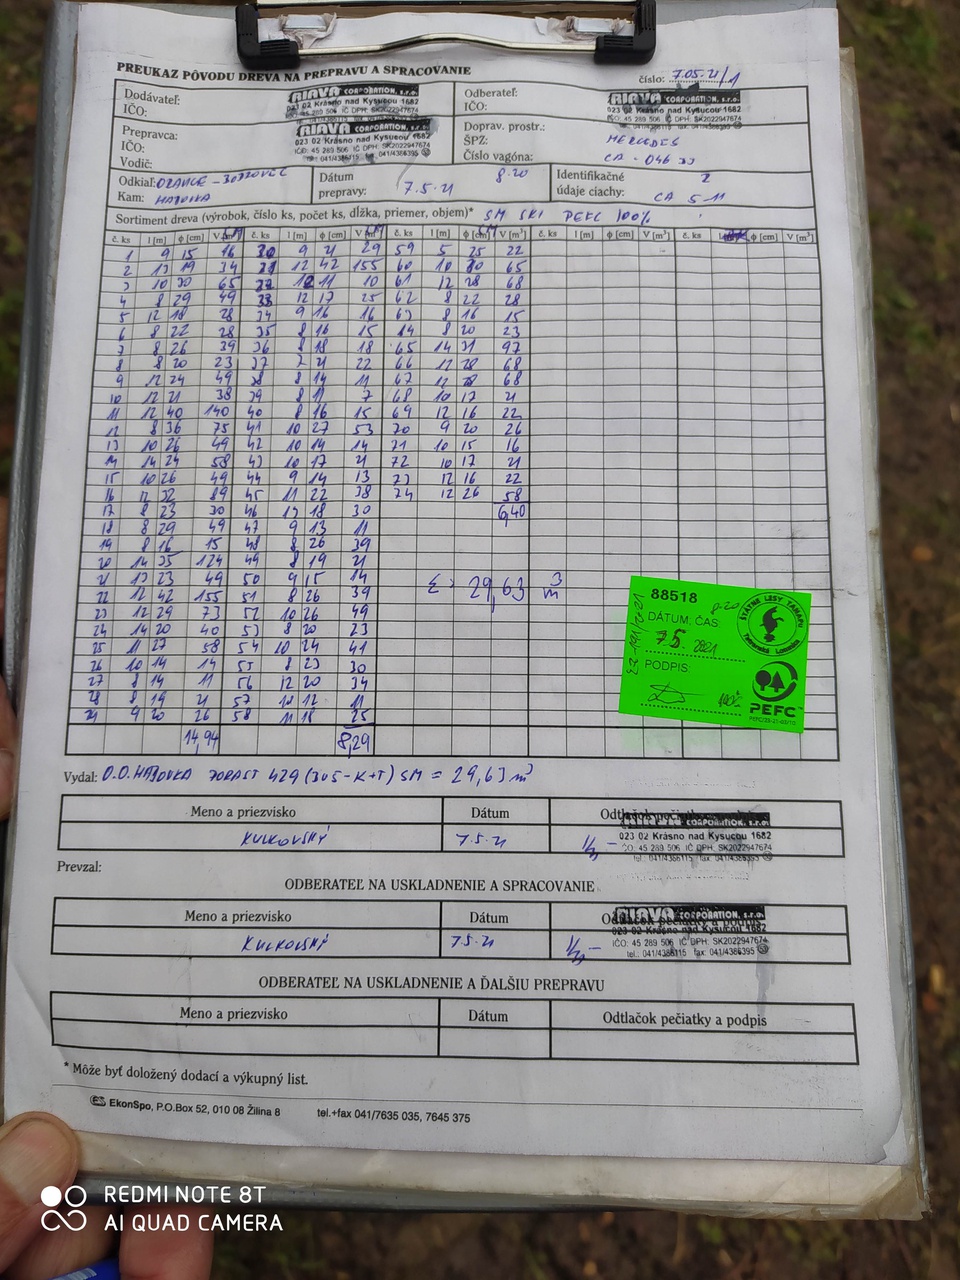 PREUKAZ PÔVODU DREVA NA PREPRAVU A SPRACOVANIE
číslo: 7.05.21/1
Dodávateľ:
IČO:
RIAVA CORPORATION, s.r.o.
023 02 Krásno nad Kysucou 1682
Odberateľ:
IČO:
RIAVA CORPORATION, s.r.o.
023 02 Krásno nad Kysucou 1682
Prepravca:
IČO:
Vodič:
RIAVA CORPORATION, s.r.o.
023 02 Krásno nad Kysucou 1682
IČO: 45 289 506 IČ DPH: SK2022947674
tel.: 041/4386115 fax: 041/4386395
Doprav. prostr.: MERCEDES
ŠPZ: CA - 046
Číslo vagóna:
Odkiaľ:
Kam: HAJOVKA
Dátum prepravy: 7.5.21 8.20
Identifikačné údaje ciachy: 2 CA 5 11
Sortiment dreva (výrobok, číslo ks, počet ks, dĺžka, priemer, objem)* SM PEFC 100%
č. ks l [m] φ [cm] V [m³] č. ks l [m] φ [cm] V [m³] č. ks l [m] φ [cm] V [m³] č. ks l [m] φ [cm] V [m³] č. ks φ [cm] V [m³]
1 9 15 16 30 9 21 29 59 5 25 22
2 13 19 34 31 12 42 155 60 10 30 65
3 10 30 65 32 12 11 10 61 12 28 68
4 8 29 49 33 12 17 25 62 8 22 28
5 12 18 28 34 9 16 16 63 8 16 15
6 8 22 28 35 8 16 15 64 8 20 23
7 8 26 39 36 8 18 18 65 14 31 97
8 8 20 23 37 7 21 22 66 12 28 68
9 12 24 49 38 8 14 11 67 12 28 68
10 12 21 38 39 8 11 7 68 10 17 21
11 12 40 140 40 8 16 15 69 12 16 22
12 8 36 75 41 10 27 53 70 9 20 26
13 10 26 49 42 10 14 14 71 10 15 16
14 14 24 58 43 10 17 21 72 10 17 21
15 10 26 49 44 9 14 13 73 12 16 22
16 12 32 89 45 11 22 38 74 12 26 58
17 8 23 30 46 13 18 30 6,40
18 8 29 49 47 9 13 11
19 8 16 15 48 8 26 39
20 14 35 124 49 8 19 21
21 13 23 49 50 9 15 14 Σ = 29,63 m³
22 12 42 155 51 8 26 39
23 12 29 73 52 10 26 49
24 14 20 40 53 8 20 23
25 11 27 58 54 10 24 41
26 10 14 14 55 8 23 30
27 8 14 11 56 12 20 34
28 8 19 21 57 10 12 11
29 9 20 26 58 11 18 25
14,94 8,29
88518
DÁTUM, ČAS 8.20
7.5. 2021
PODPIS
ŠTÁTNE LESY TANAPu
Tatranská Lomnica
PEFC™
Vydal: O.O. HAJOVKA 429 (305-K+T) SM = 29,63 m³
Meno a priezvisko Dátum Odtlačok pečiatky a podpis
KULKOVSKÝ 7.5.21
CORPORATION, s.r.o.
023 02 Krásno nad Kysucou 1682
IČO: 45 289 506 IČ DPH: SK2022947674
tel.: 041/4386115 fax: 041/4386395
Prevzal:
ODBERATEĽ NA USKLADNENIE A SPRACOVANIE
Meno a priezvisko Dátum Odtlačok pečiatky a podpis
KULKOVSKÝ 7.5.21
RIAVA CORPORATION, s.r.o.
023 02 Krásno nad Kysucou 1682
IČO: 45 289 506 IČ DPH: SK2022947674
tel.: 041/4386115 fax: 041/4386395
ODBERATEĽ NA USKLADNENIE A ĎALŠIU PREPRAVU
Meno a priezvisko Dátum Odtlačok pečiatky a podpis
* Môže byť doložený dodací a výkupný list.
ES EkonSpo, P.O.Box 52, 010 08 Žilina 8 tel.+fax 041/7635 035, 7645 375
REDMI NOTE 8T
AI QUAD CAMERA